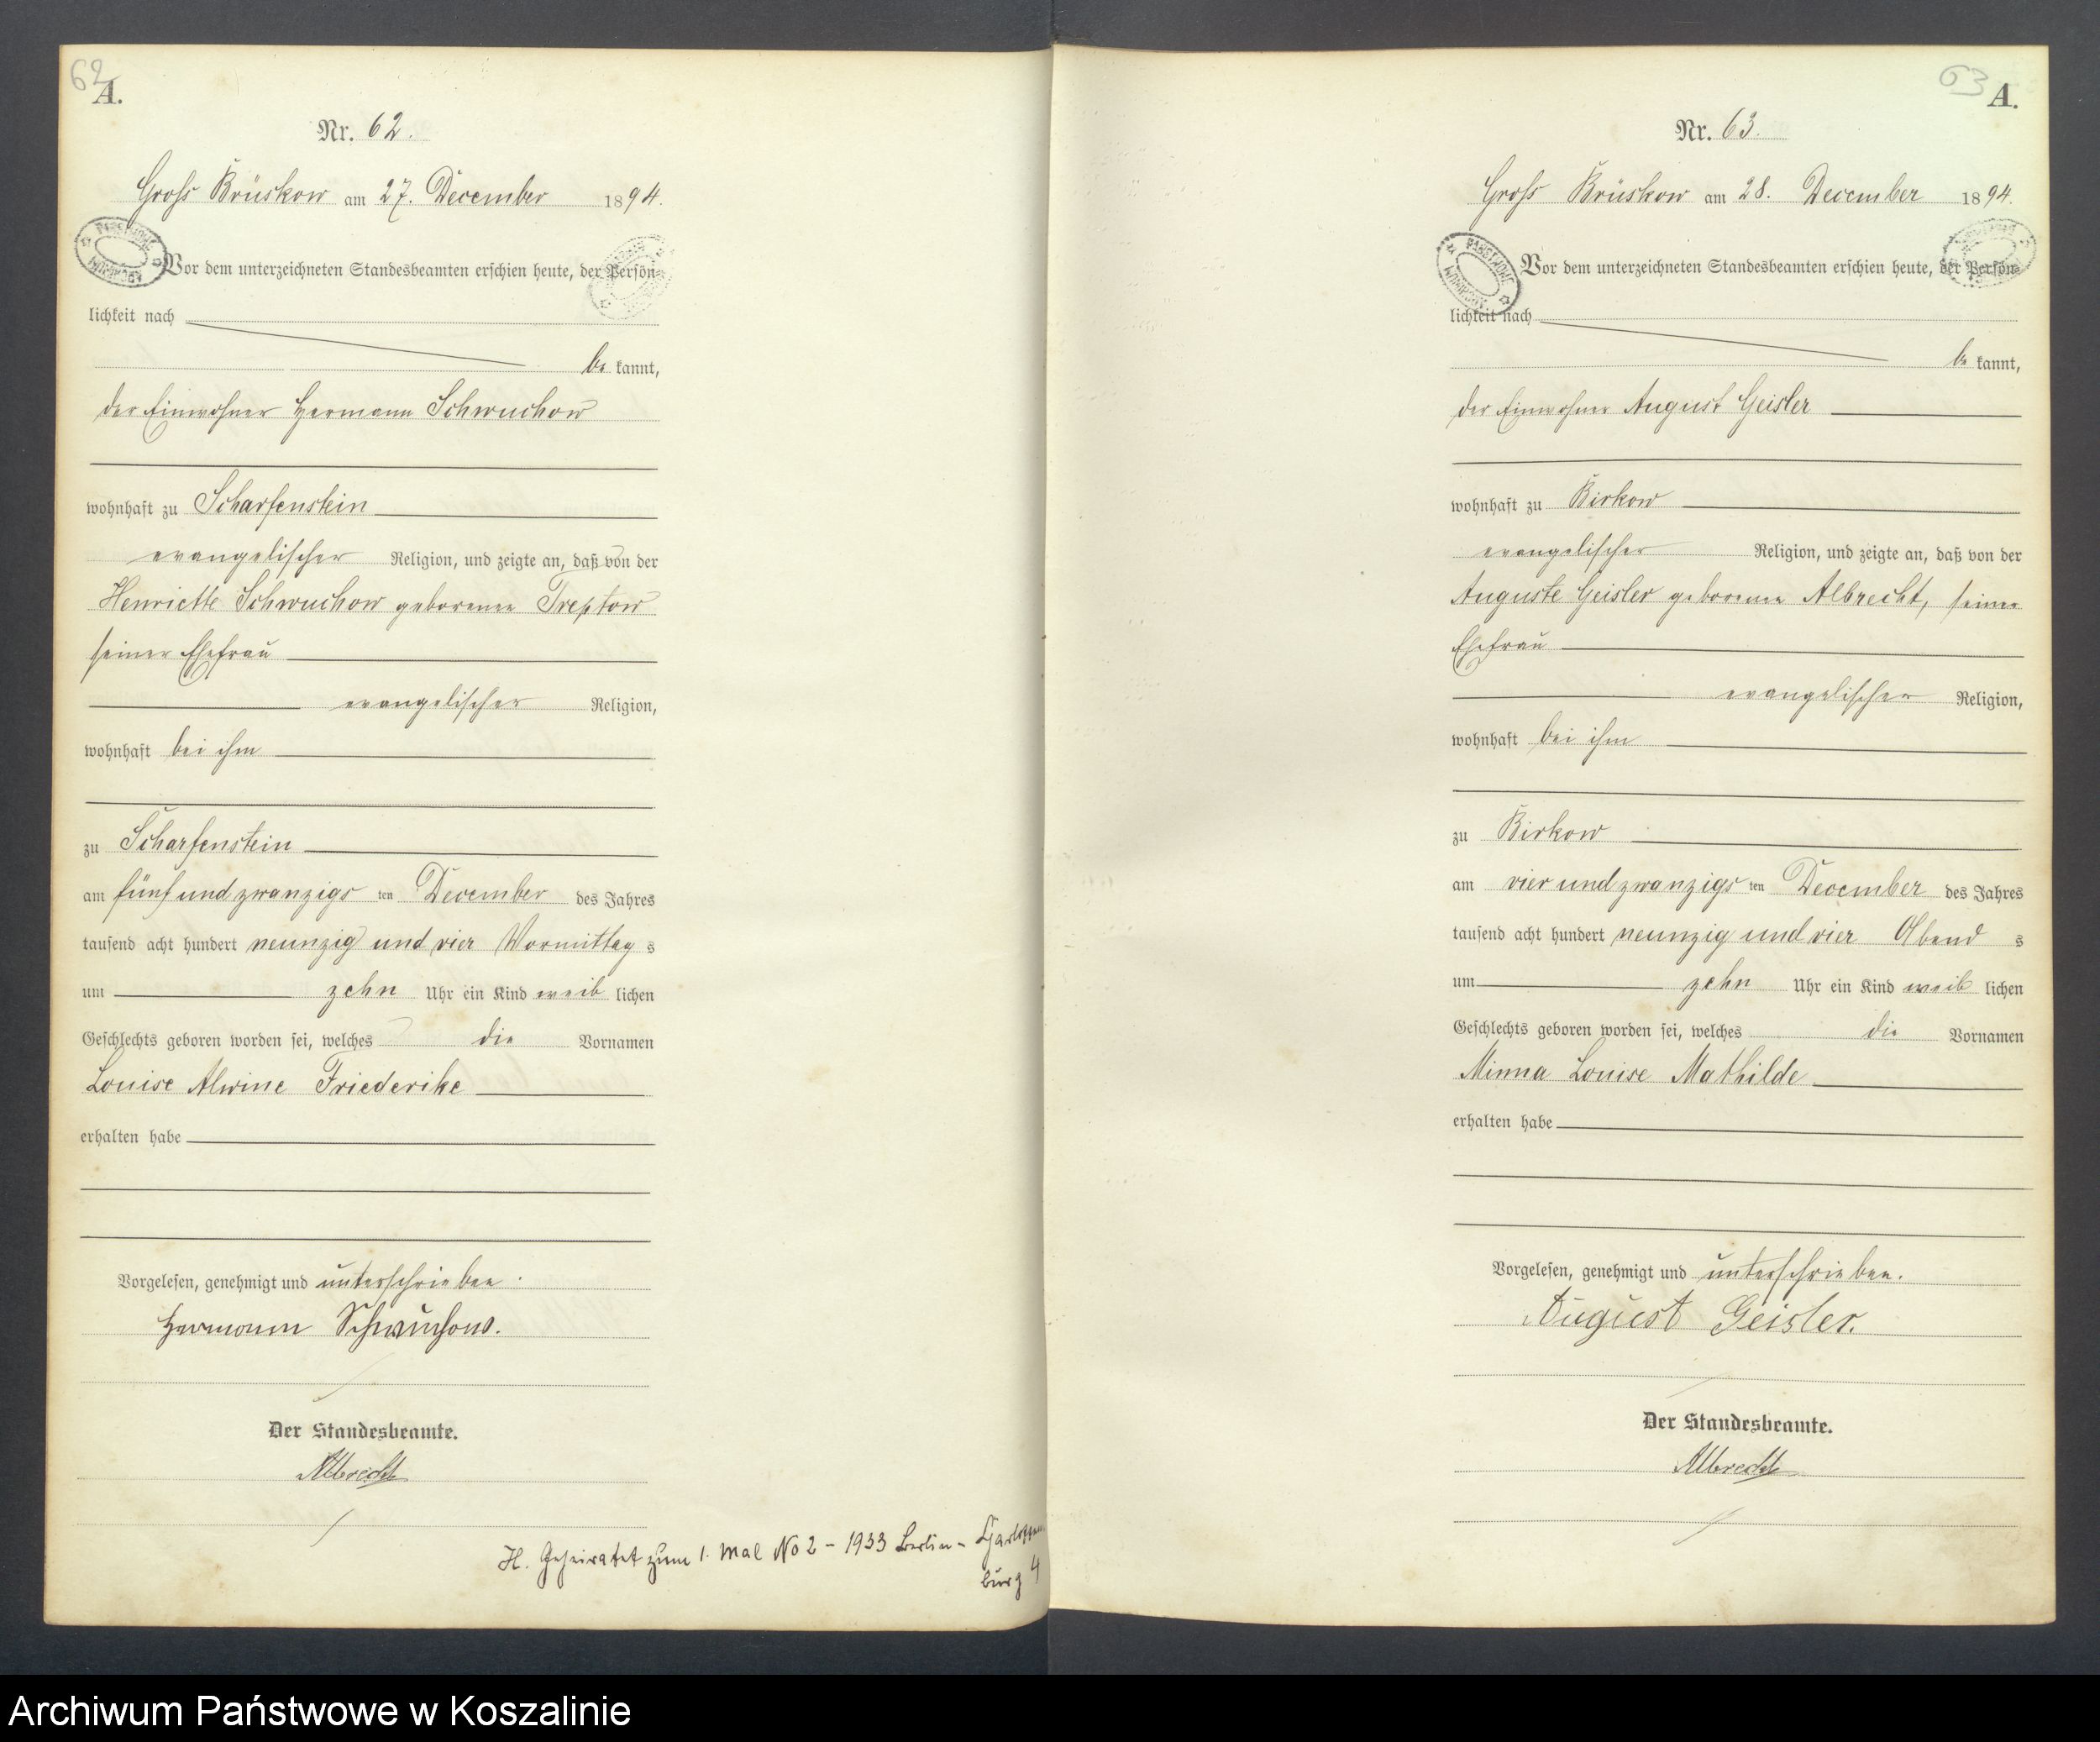 62
A.
Nr. 62.
Gross Brüskow am 27. December 1894.
Vor dem unterzeichneten Standesbeamten erschien heute, der Persön-
lichkeit nach
be kannt,
der Einwohner Hermann Schwuchow
wohnhaft zu Scharfenstein
evangelischer Religion, und zeigte an, daß von der
Henriette Schwuchow geborenen Treptow
seiner Ehefrau
evangelischer Religion,
wohnhaft bei ihm
zu Scharfenstein
am fünf und zwanzigs ten December des Jahres
tausend acht hundert neunzig und vier Vormittag s
um zehn Uhr ein Kind weib lichen
Geschlechts geboren worden sei, welches die Vornamen
Louise Alwine Friederike
erhalten habe
Vorgelesen, genehmigt und unterschrieben.
Hermann Schwuchow.
Der Standesbeamte.
Albrecht
H. Geheiratet zum 1. Mal No 2 - 1933 Berlin-
burg 4
63
A.
Nr. 63.
Gross Brüskow am 28. December 1894.
Vor dem unterzeichneten Standesbeamten erschien heute, der Persön-
lichkeit nach
be kannt,
der Einwohner August Geisler
wohnhaft zu Birkow
evangelischer Religion, und zeigte an, daß von der
Auguste Geisler geborenen Albrecht, seiner
Ehefrau
evangelischer Religion,
wohnhaft bei ihm
zu Birkow
am vier und zwanzigs ten December des Jahres
tausend acht hundert neunzig und vier Abend s
um zehn Uhr ein Kind weib lichen
Geschlechts geboren worden sei, welches die Vornamen
Minna Louise Mathilde
erhalten habe
Vorgelesen, genehmigt und unterschrieben.
August Geisler.
Der Standesbeamte.
Albrecht
Archiwum Państwowe w Koszalinie